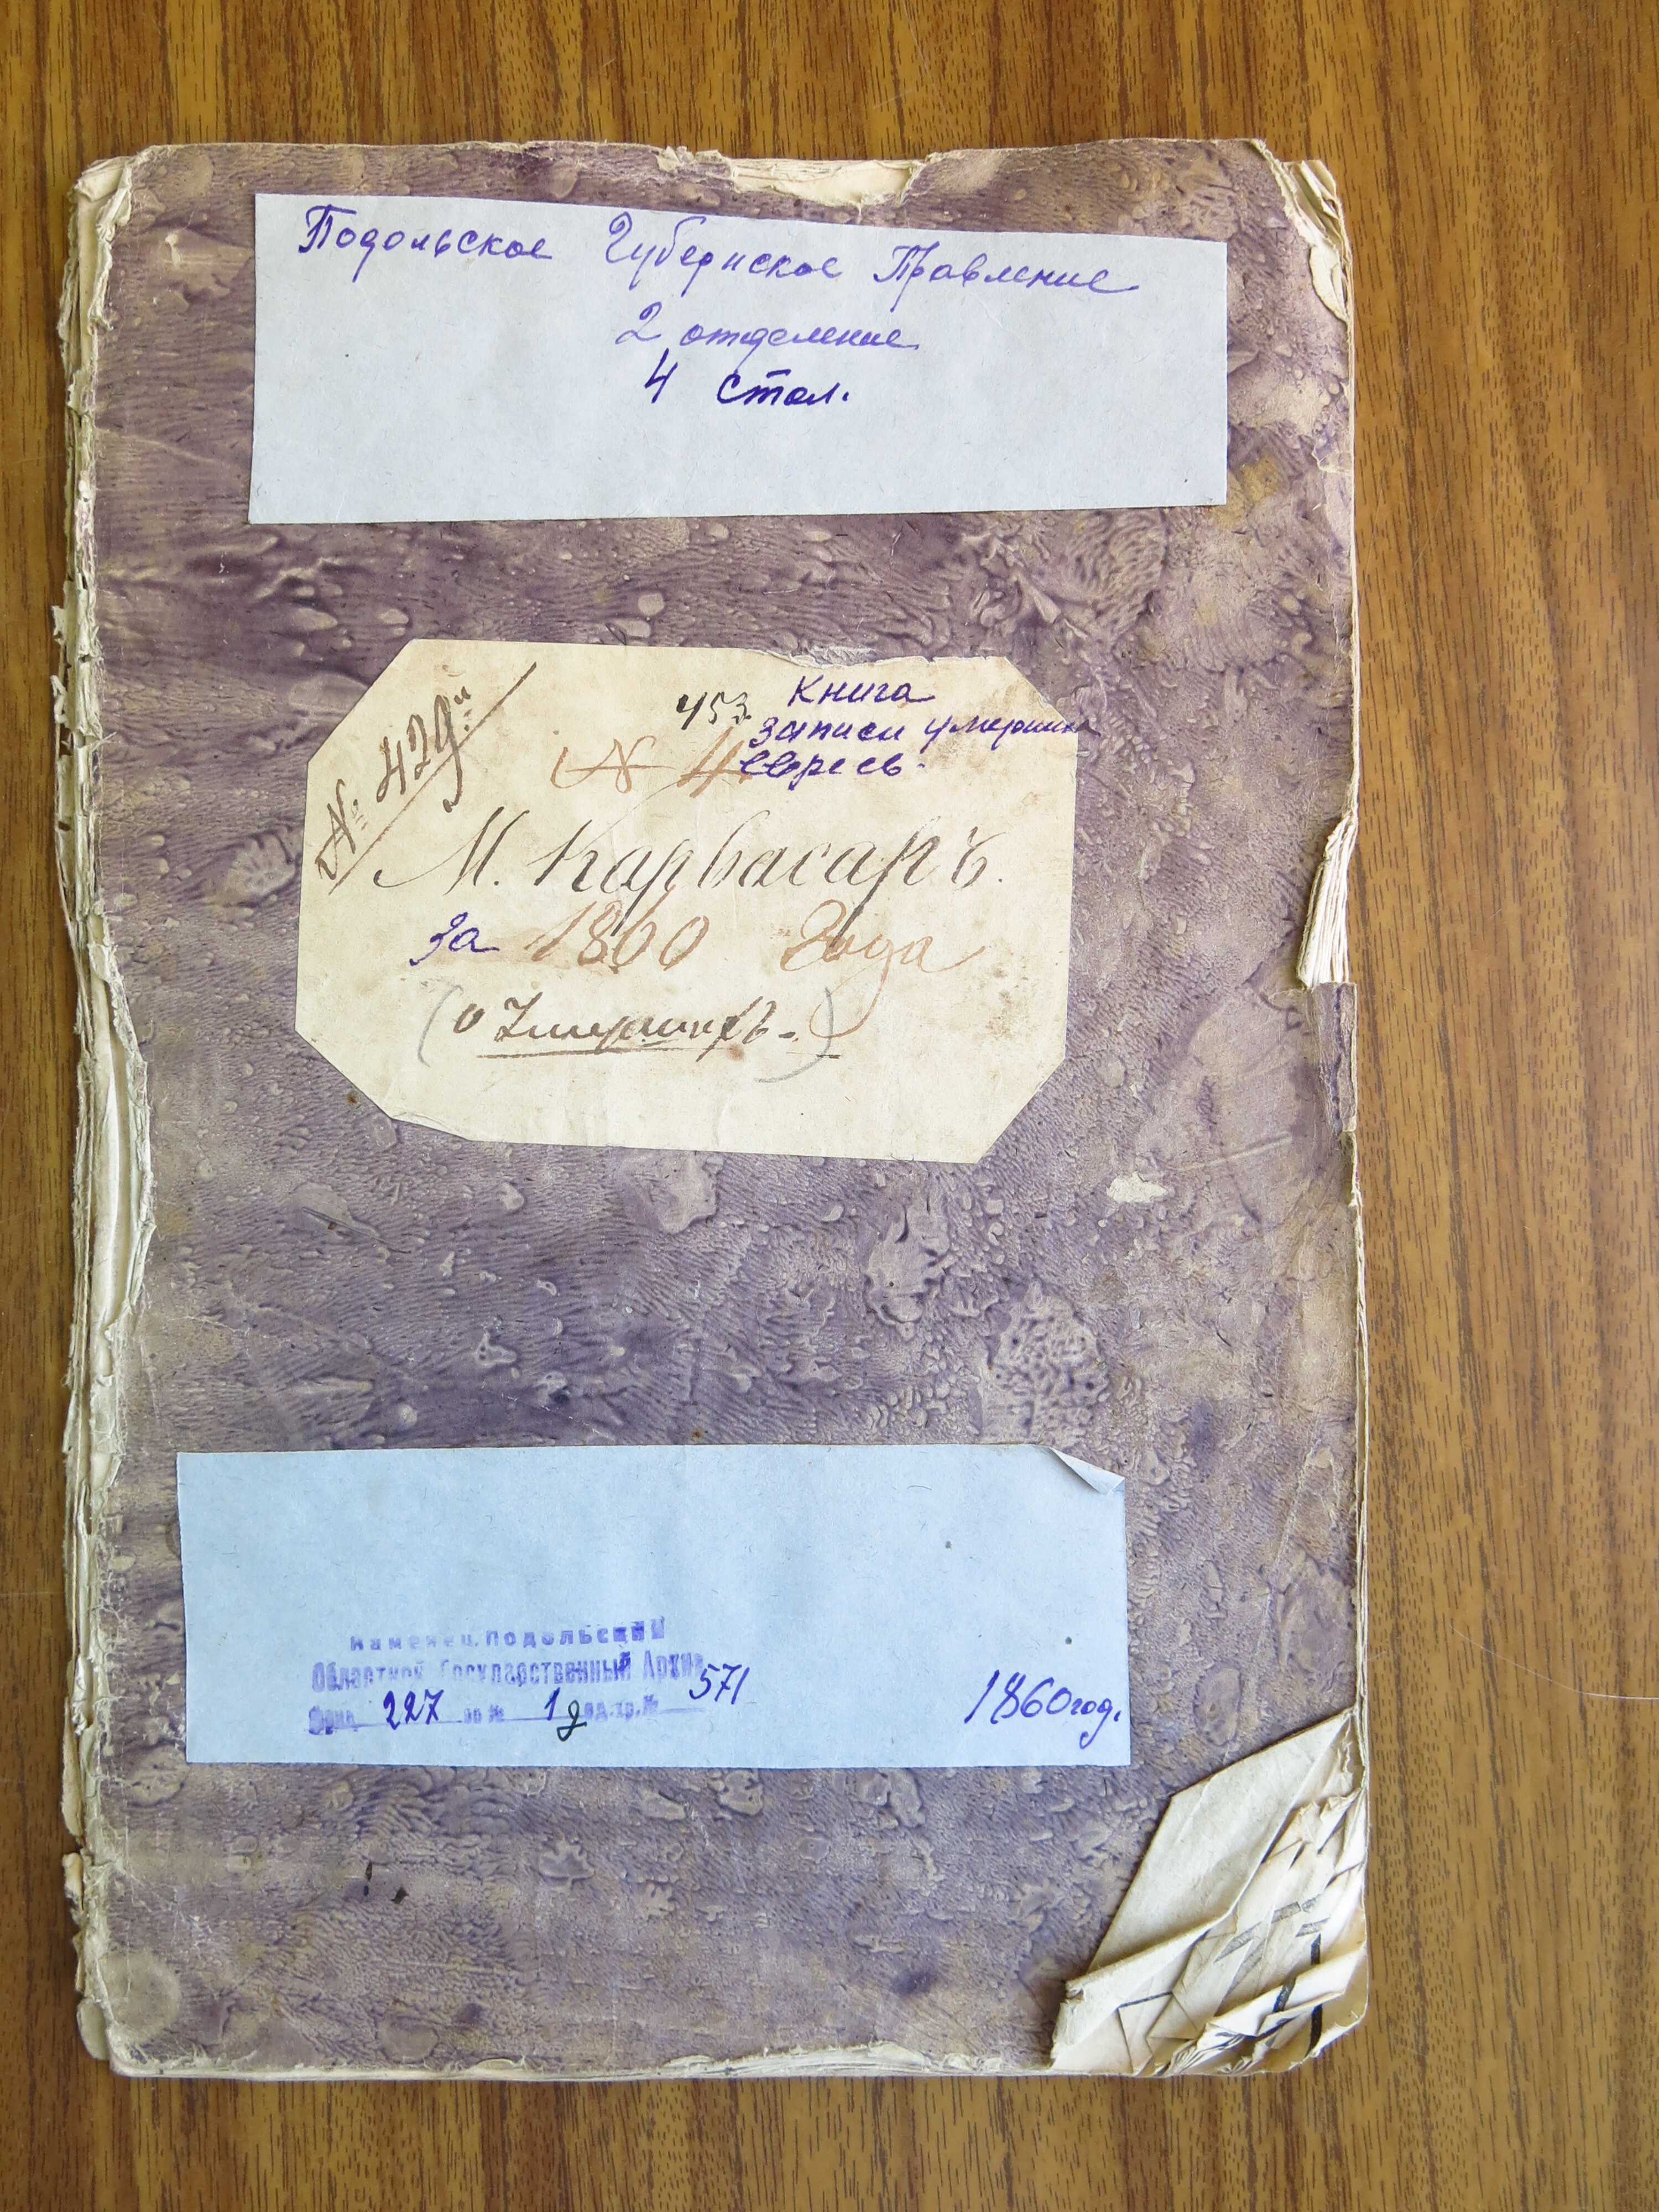 Подольское Губернское Правление
2 отделение
4 стол.
№ 429й
453
Книга
записи умерших
евреев.
№ 4
М. Карвасаръ.
за 1860 Года
(о Умершихъ.)
Каменец.Подольский
Областной Государственный Архив
Фонд 227 оп № 1д ед.хр.№ 571
1860год.